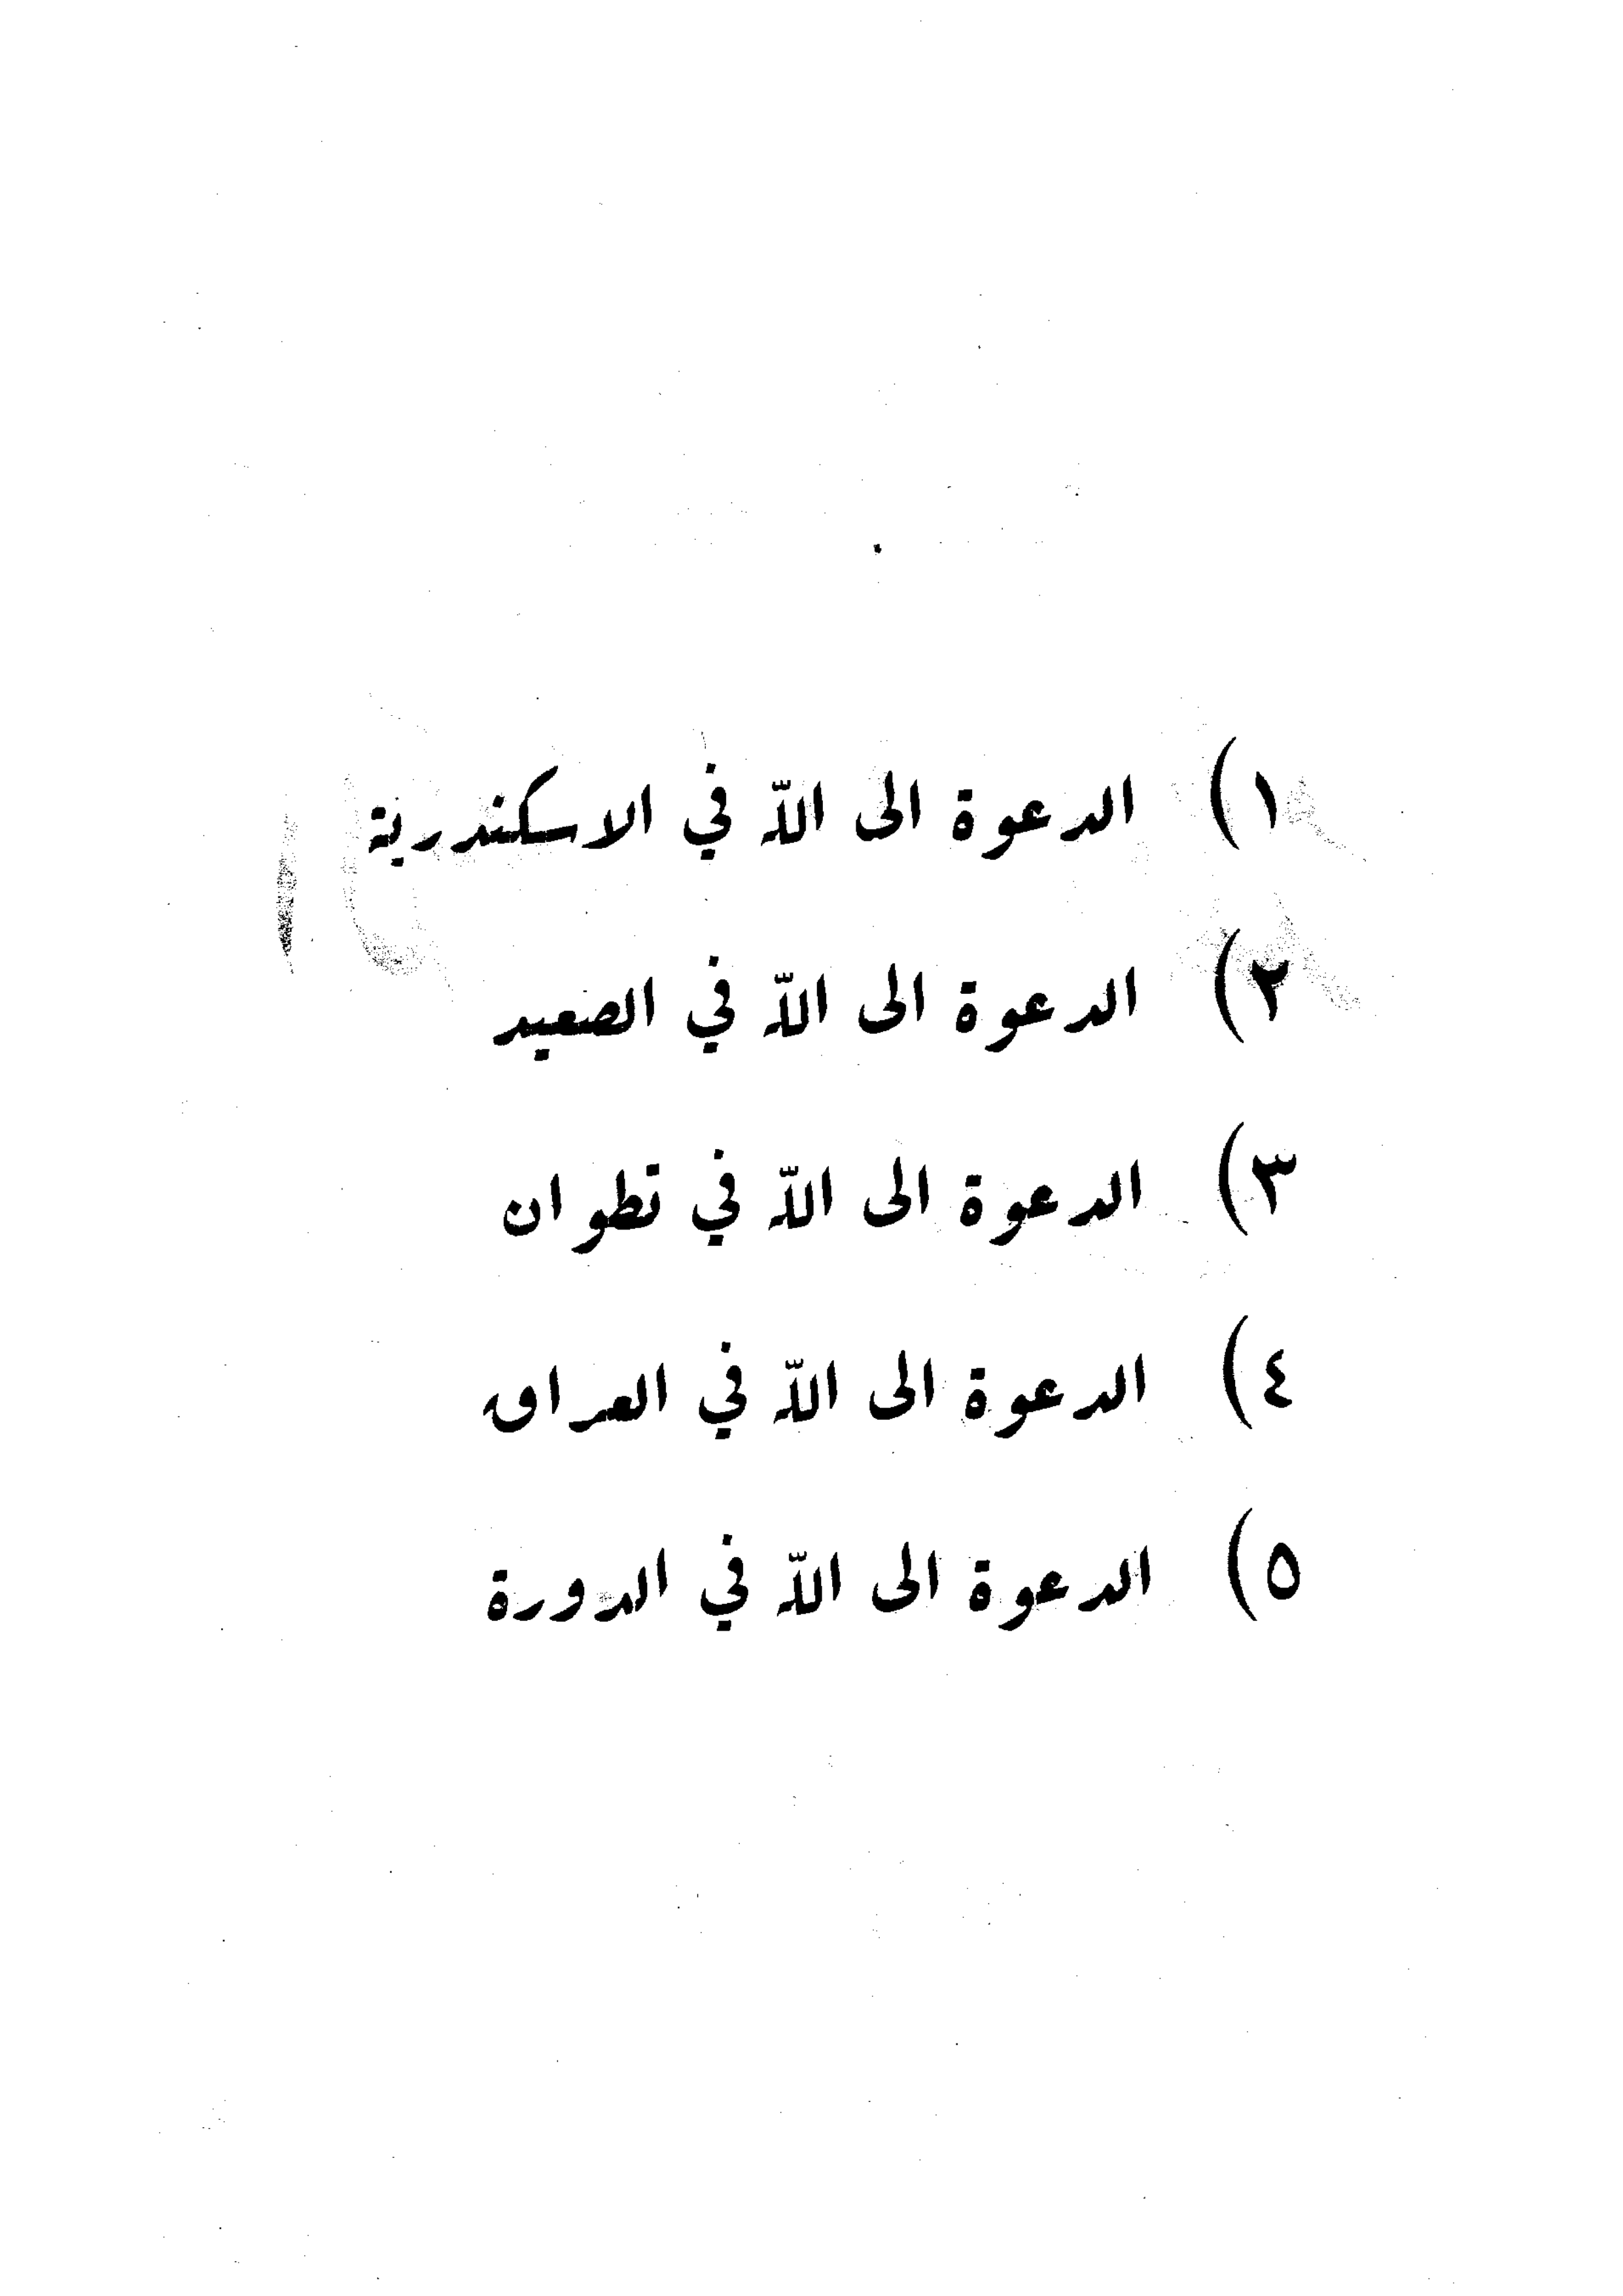 ١) الدعوة الى اللّه في الاسكندرية
٢) الدعوة الى اللّه في الصعيد
٣) الدعوة الى اللّه في تطوان
٤) الدعوة الى اللّه في العراق
٥) الدعوة الى اللّه في الدورة